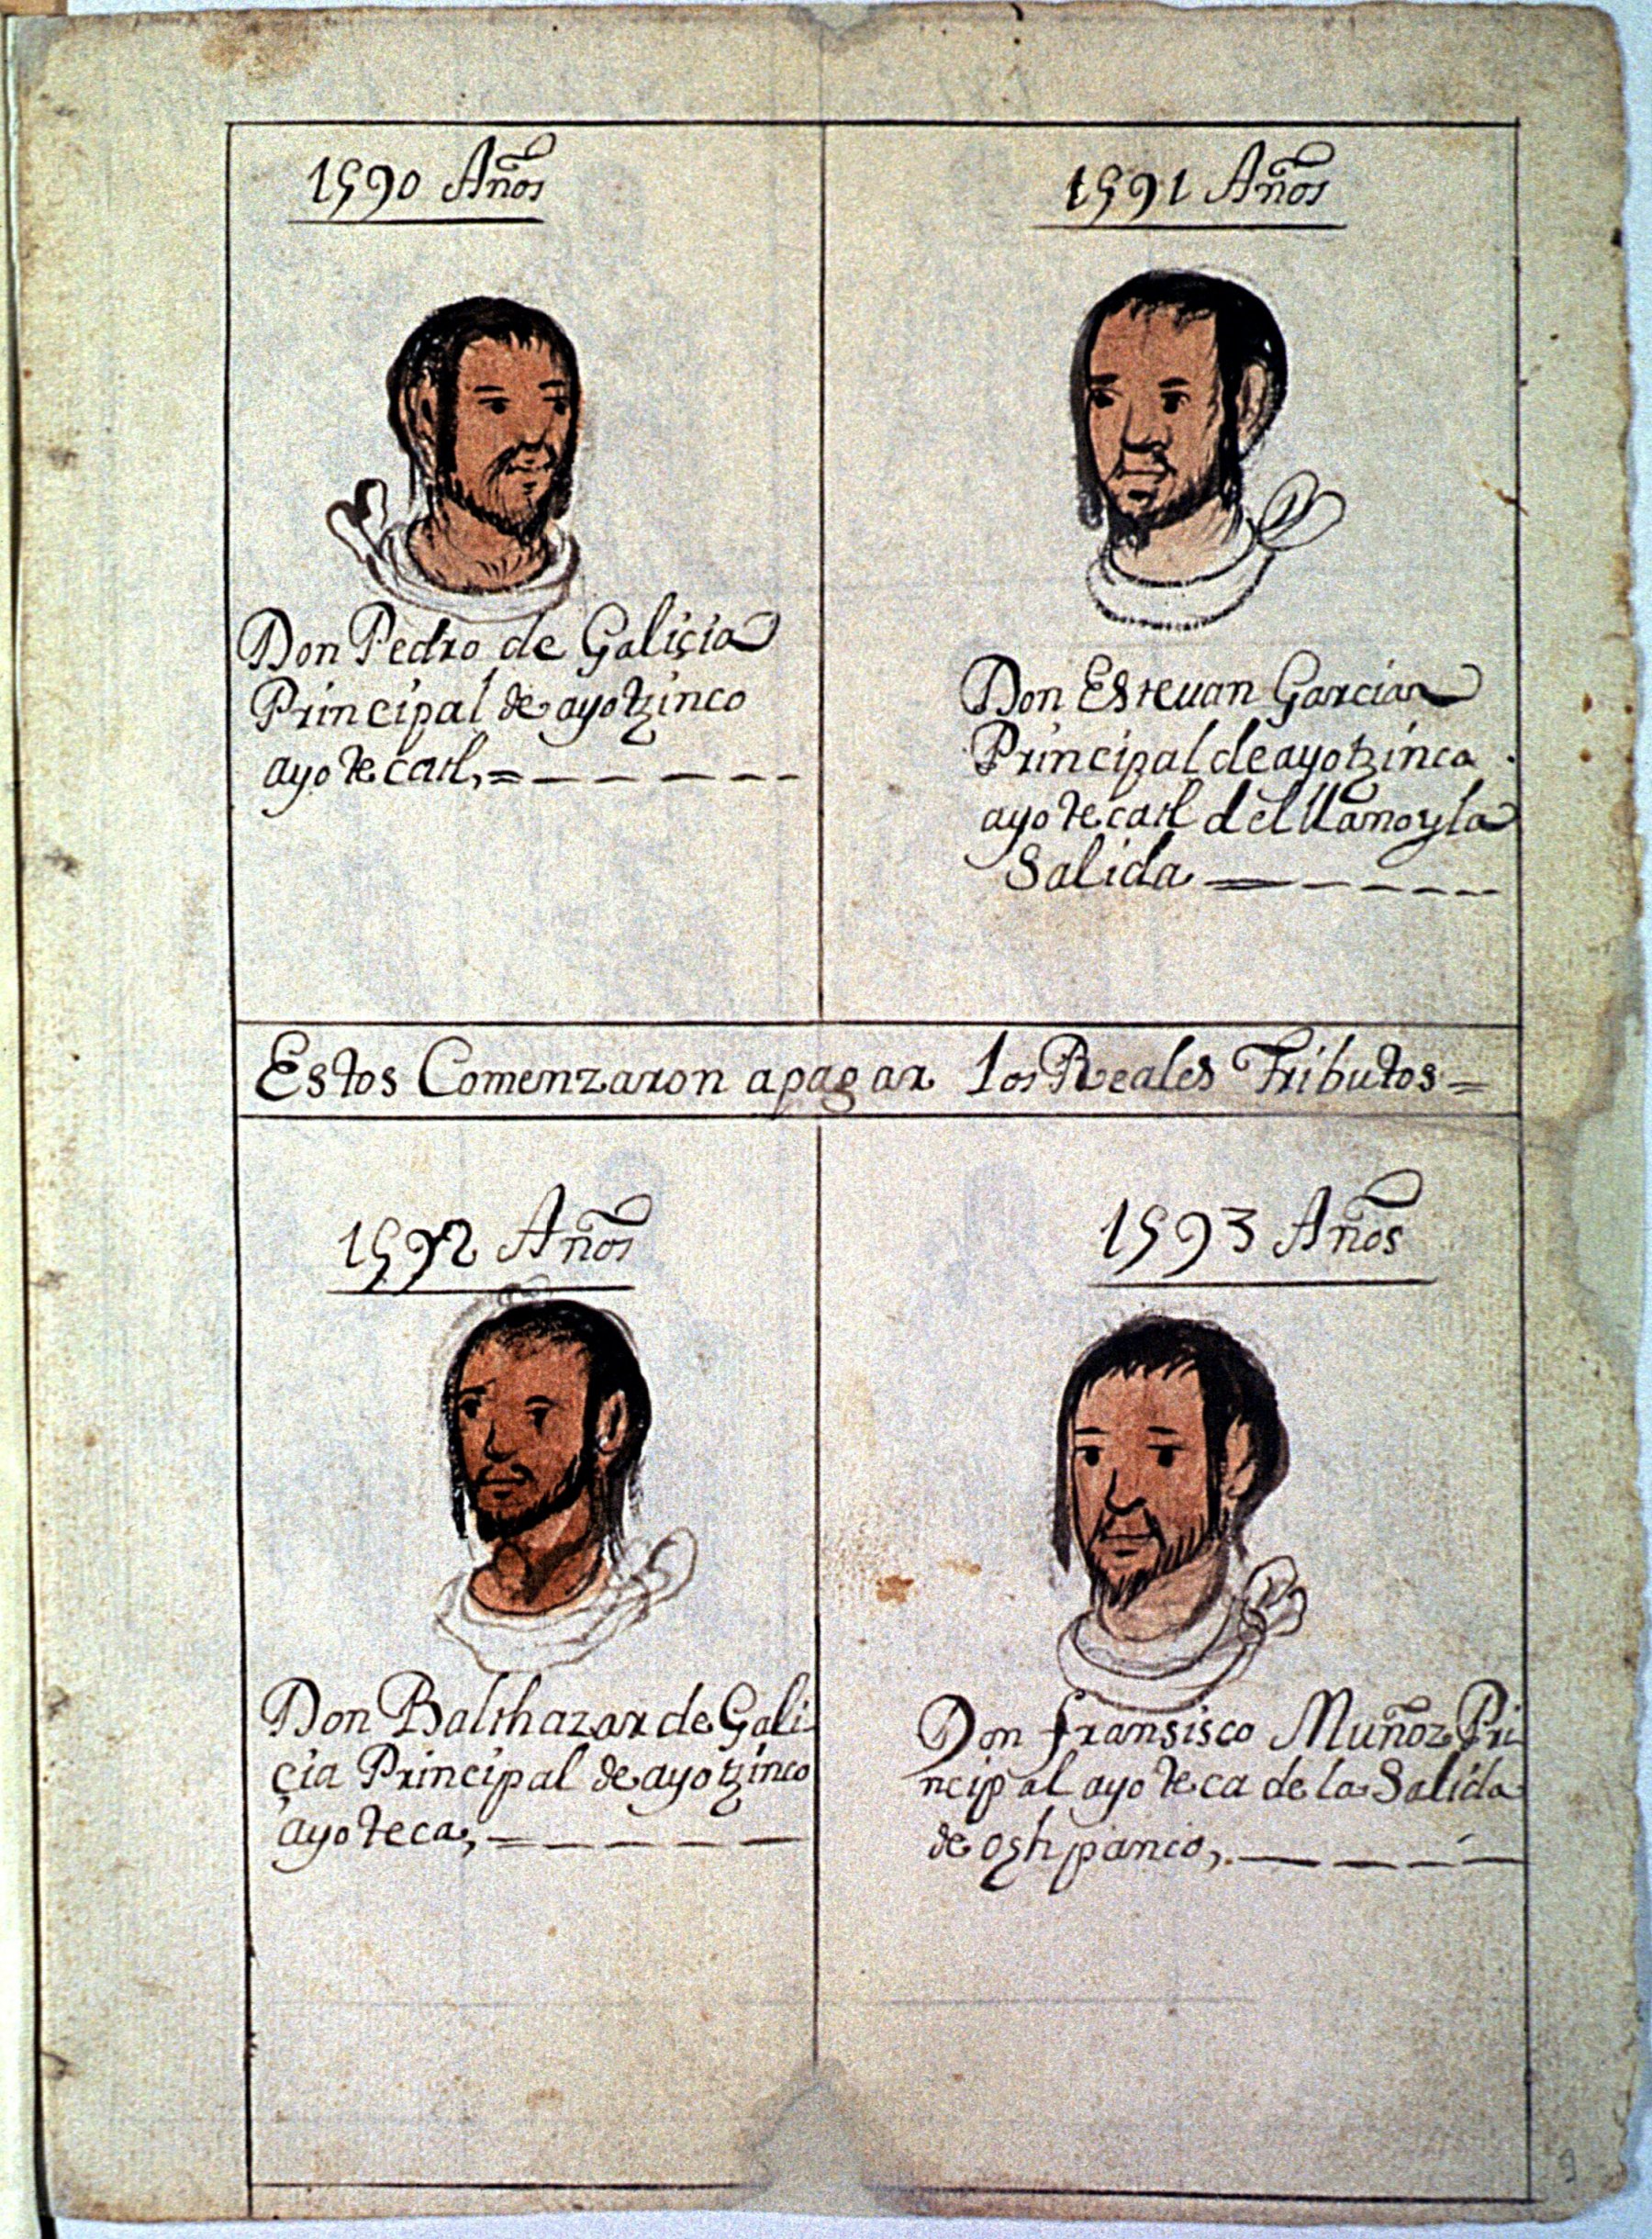 1590 Años
Don Pedro de Galiçia
Principal de ayotzinco
ayotecatl,=
1591 Años
Don Esteuan Garcia
Principal de ayotzinca
ayotecatl del llano y la
Salida
Estos Comenzaron apagar los Reales Tributos=
1592 Años
Don Balthazar de Gali-
çia Principal de ayotzinco
ayoteca,
1593 Años
Don fransisco Muñoz Pri
ncipal ayoteca de la Salida
de
9